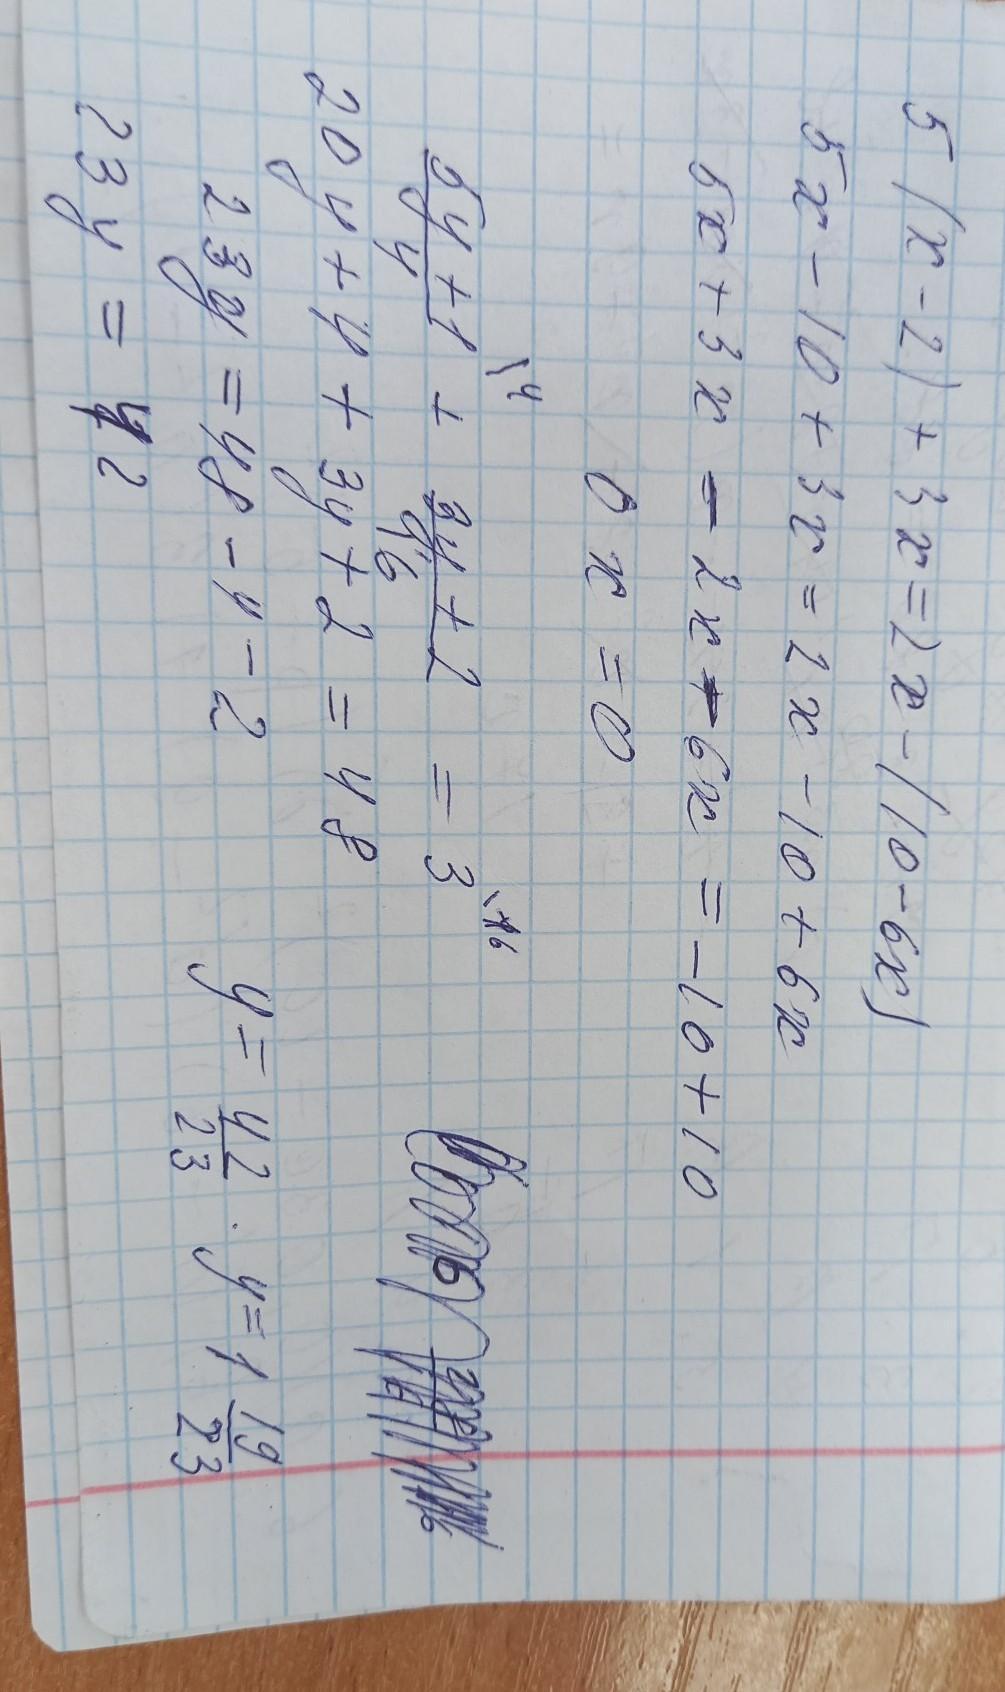 5(x-2)+3x=2x-(10-6x)
5x-10+3x=2x-10+6x
5x+3x-2x-6x=-10+10
0x=0
\frac{5y+1}{4}^{\4} + \frac{3y+2}{16} = 3^{\16}
20y+4+3y+2=48
23y=48-4-2
23y=42
y=\frac{42}{23}. y=1\frac{19}{23}